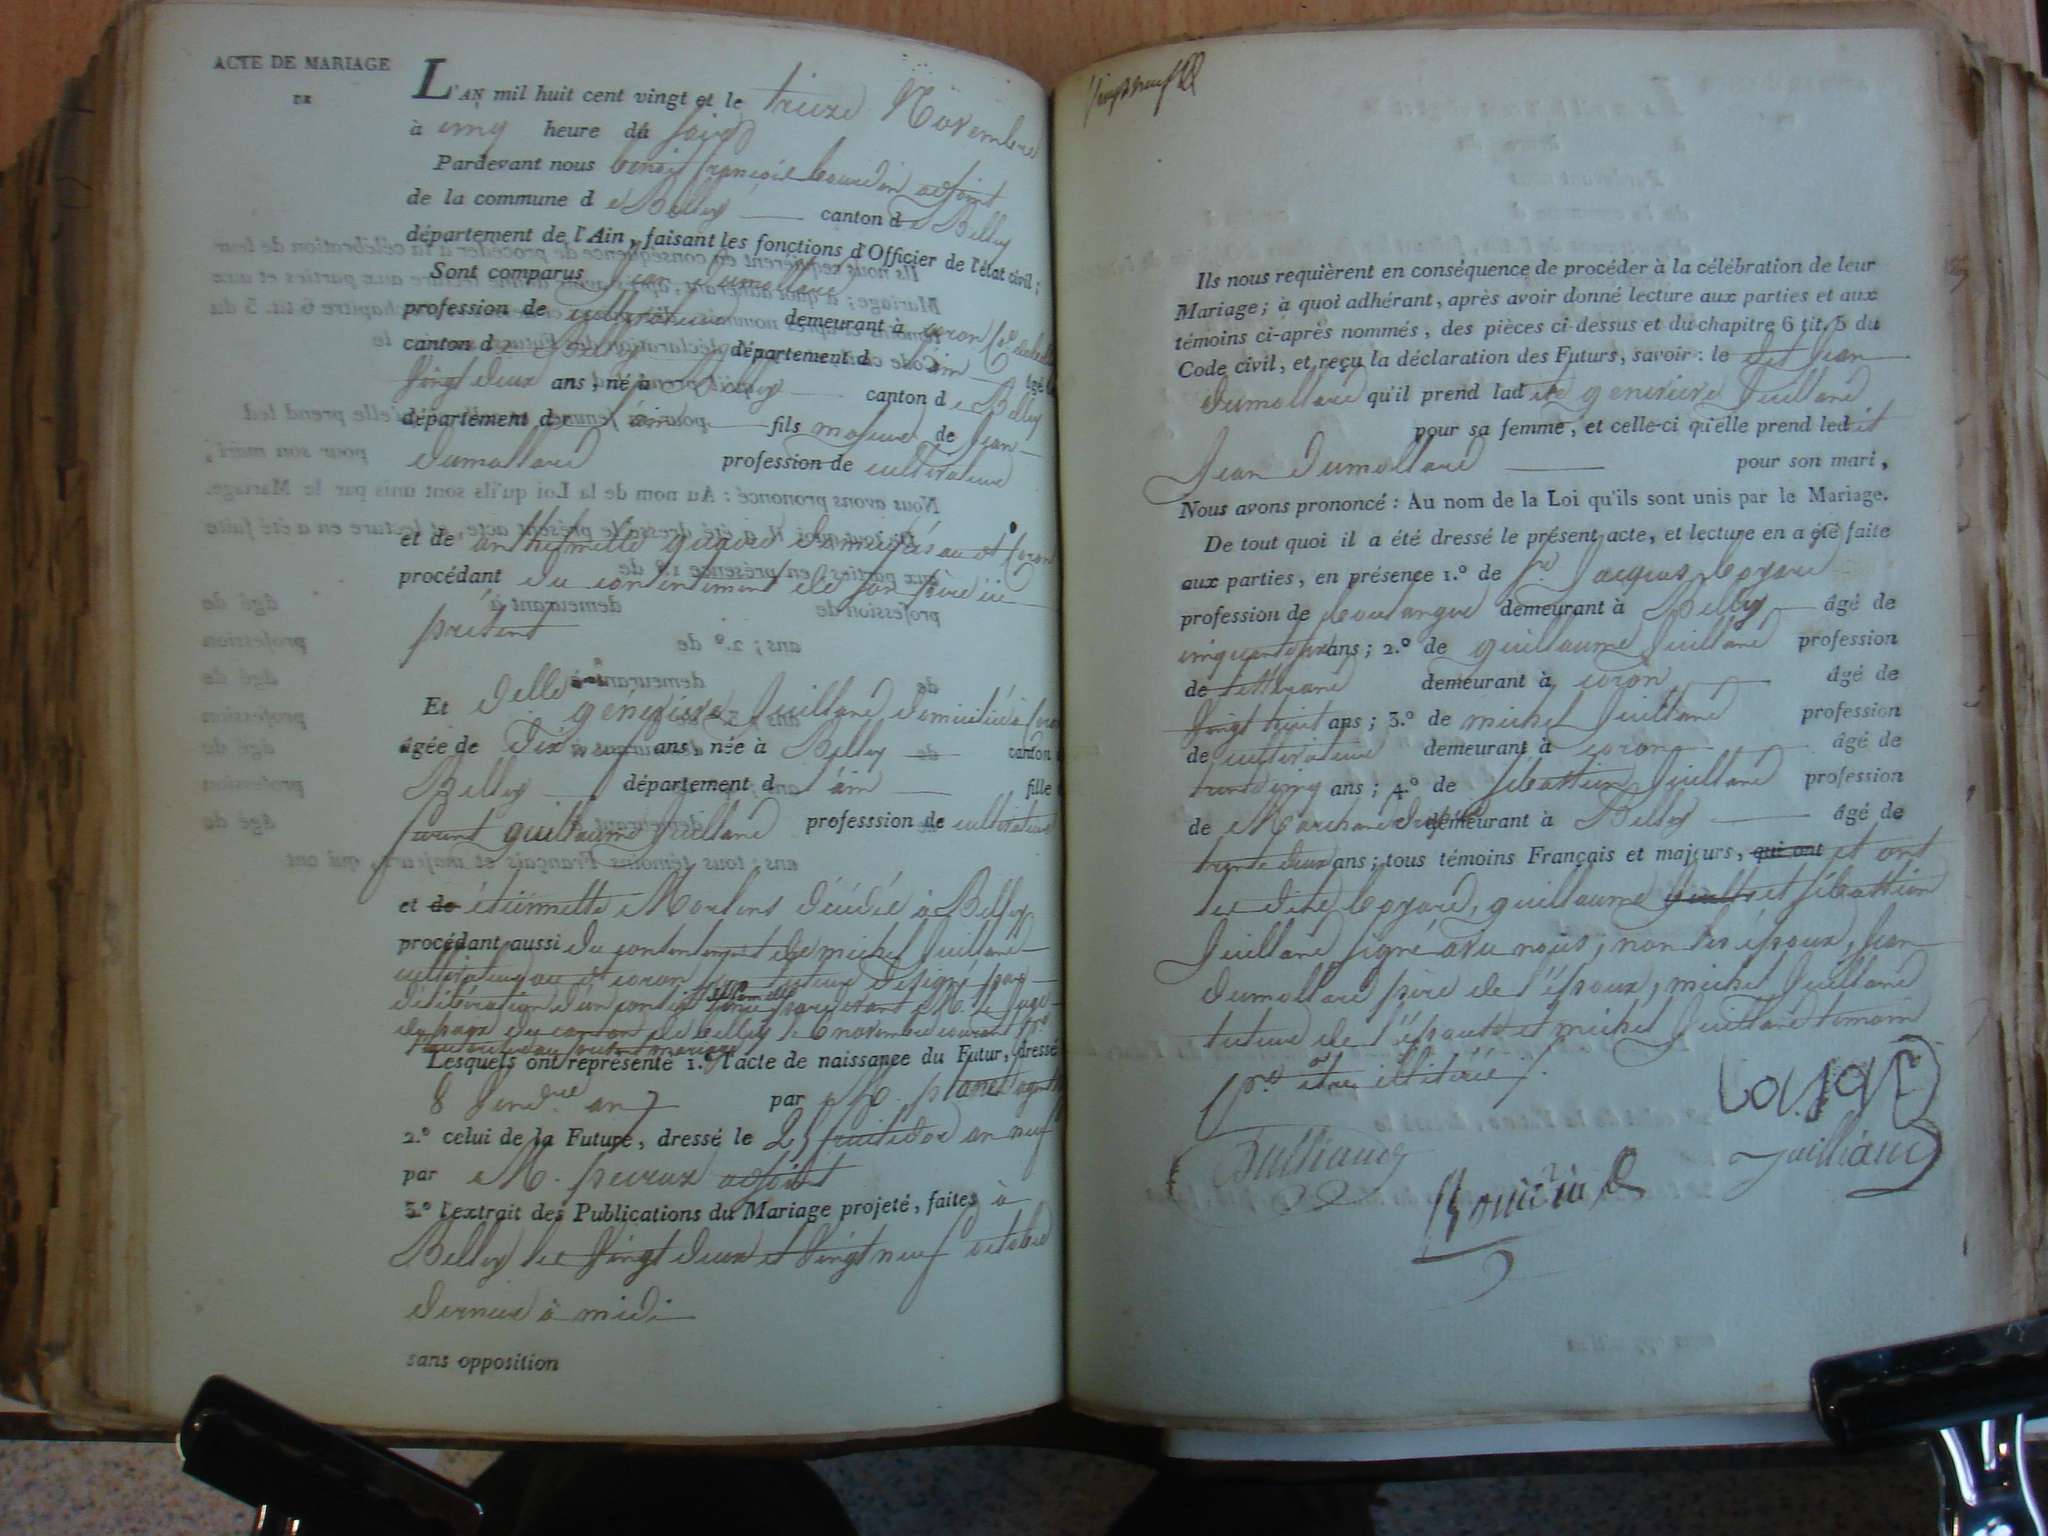 ACTE DE MARIAGE
DE
L'AN mil huit cent vingt et le treize Novembre
à cinq heure du soir
Pardevant nous benoit françois adjoint
de la commune d e Belley canton d e Belley
département de l'Ain, faisant les fonctions d'Officier de l'état civil;
Sont comparus Jean Dumollard
profession de cultivateur demeurant à coron
canton d e Belley département d e l'ain âgé
Vingt deux ans, né à Belley canton d e Belley
département d e l'ain fils majeur de Jean
Dumollard profession de cultivateur
et de anthelmette domiciliés au dt Coron
procédant du consentement de son père ici
présent
Et Delle généviève Juilland domiciliée à Coron
âgée de Dix neuf ans, née à Belley canton
Belley département d e l'ain fille
furent guillaume Juilland professsion de cultivateur
et de étiennette décédée à Belley
procédant aussi du contentement de michel Juilland
cultivateur au dt coron son tuteur désigné par
délibération d'un conseil de famille pardevant M. le juge
de paix du canton de belley le 6 novembre courant
Lesquels ont représenté 1.º l'acte de naissance du Futur, dressé
8 Vend.re an 7 par M.
2.º celui de la Future, dressé le fructidor an neuf
par M. peyroux adjoint
3.º l'extrait des Publications du Mariage projeté, faites à
Belley les Vingt deux et Vingt neuf octobre
dernier à midi
sans opposition
Vingt neuf
Ils nous requièrent en conséquence de procéder à la célébration de leur
Mariage; à quoi adhérant, après avoir donné lecture aux parties et aux
témoins ci-après nommés, des pièces ci-dessus et du chapitre 6 tit. 5 du
Code civil, et reçu la déclaration des Futurs, savoir: le dit Jean
Dumollard qu'il prend lad ite généviève Juilland
pour sa femme, et celle-ci qu'elle prend led it
Jean Dumollard pour son mari,
Nous avons prononcé: Au nom de la Loi qu'ils sont unis par le Mariage.
De tout quoi il a été dressé le présent acte, et lecture en a été faite
aux parties, en présence 1.º de Sr. Jacques loyard
profession de boulanger demeurant à Belley âgé de
ans; 2.º de guillaume Juilland profession
de demeurant à coron âgé de
Vingt huit ans; 3.º de michel Juilland profession
de cultivateur demeurant à coron âgé de
trente cinq ans; 4.º de sébastien Juilland profession
de Marchand demeurant à Belley âgé de
trente deux ans; tous témoins Français et majeurs, qui ont et ont
les dits loyard, guillaume et sébastien
Juilland signé avec nous, non les époux, Jean
Dumollard père de l'époux, michel Juilland
tuteur de l'épouse et michel Juilland témoin
pr. être illitérés
Loyard
Juilliand
Juilliand